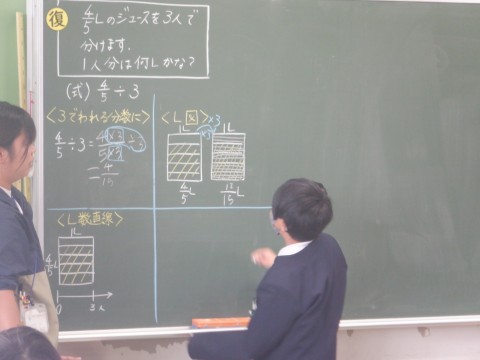 復
4/5Lのジュースを3人で
分けます。
1人分は何Lかな?
(式) 4/5÷3
<3でわれる分数に>
4/5÷3=4×3/5×3÷3
=4/15
<L図>
×3
×3
1L 1L
4/5L 12/15L
<L数直線>
1L
4/5L
0 3人